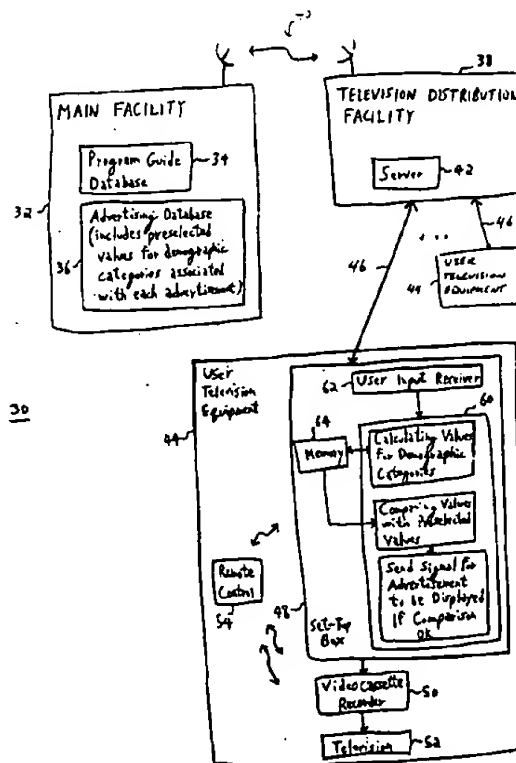 MAIN FACILITY
Program Guide
Database
34
32
36
Advertising Database
(includes preselected
values for demographic
categories associated
with each advertisement)
38
TELEVISION DISTRIBUTION
FACILITY
Server
42
46
46
...
44
USER
TELEVISION
EQUIPMENT
30
User
Television
Equipment
44
62
User Input Receiver
60
64
Memory
Calculating Values
for Demographic
Categories
Comparing Values
with Preselected
Values
Send Signal for
Advertisement
to be Displayed
If Comparison
OK
Remote
Control
54
48
Set-Top
Box
Videocassette
Recorder
50
Television
52